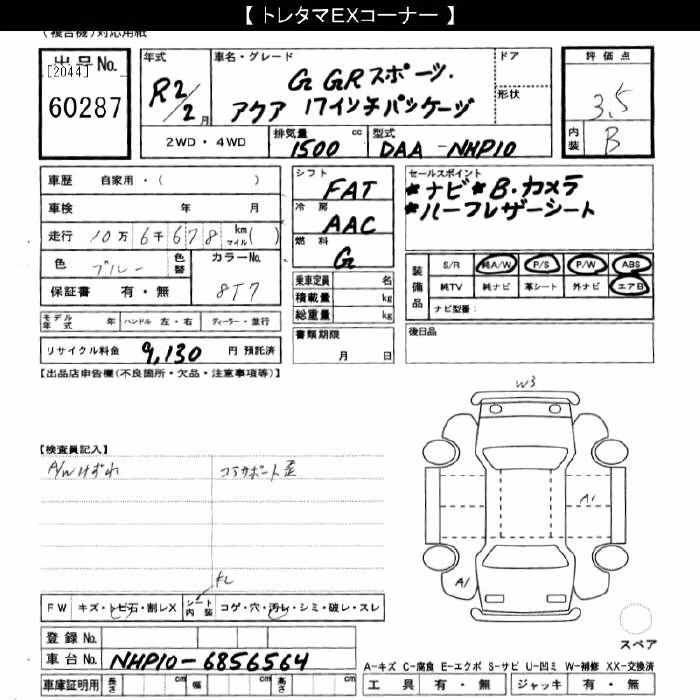 【 トレタマEXコーナー 】
(複合機)対応用紙
出品No.
[2044]
60287
年式
R2/2月
車名・グレード
G GRスポーツ.
アクア 17インチパッケージ
ドア
形状
評価点
3.5
内装
B
2WD・4WD
排気量
1500 cc
型式
DAA-NHP10
車歴 自家用・( )
車検 年 月
走行 10万6千678 km マイル( )
色 ブルー
色替
カラーNo.
8T7
保証書 有・無
シフト
FAT
冷房
AAC
燃料
G
乗車定員 名
積載量 kg
総重量 kg
書類期限
月 日
セールスポイント
*ナビ*B.カメラ
*ハーフレザーシート
装備品
S/R 純A/W P/S P/W ABS
純TV 純ナビ 革シート 外ナビ エアB
ナビ型番:
後日品
モデル年式 年 ハンドル 左・右 ディーラー・並行
リサイクル料金 9,130 円 預託済
【出品店申告欄(不良箇所・欠品・注意事項等)】
【検査員記入】
A/Wけずれ
コアサポート歪
FL
FW キズ・トビ石・割レX
シート内装 コゲ・穴・汚レ・シミ・破レ・スレ
登録No.
車台No. NHP10-6856564
車庫証明用 長さ cm 幅 cm 高さ cm
W3
A1
A1
スペア
A-キズ C-腐食 E-エクボ S-サビ U-凹ミ W-補修 XX-交換済
工具 有・無 ジャッキ 有・無